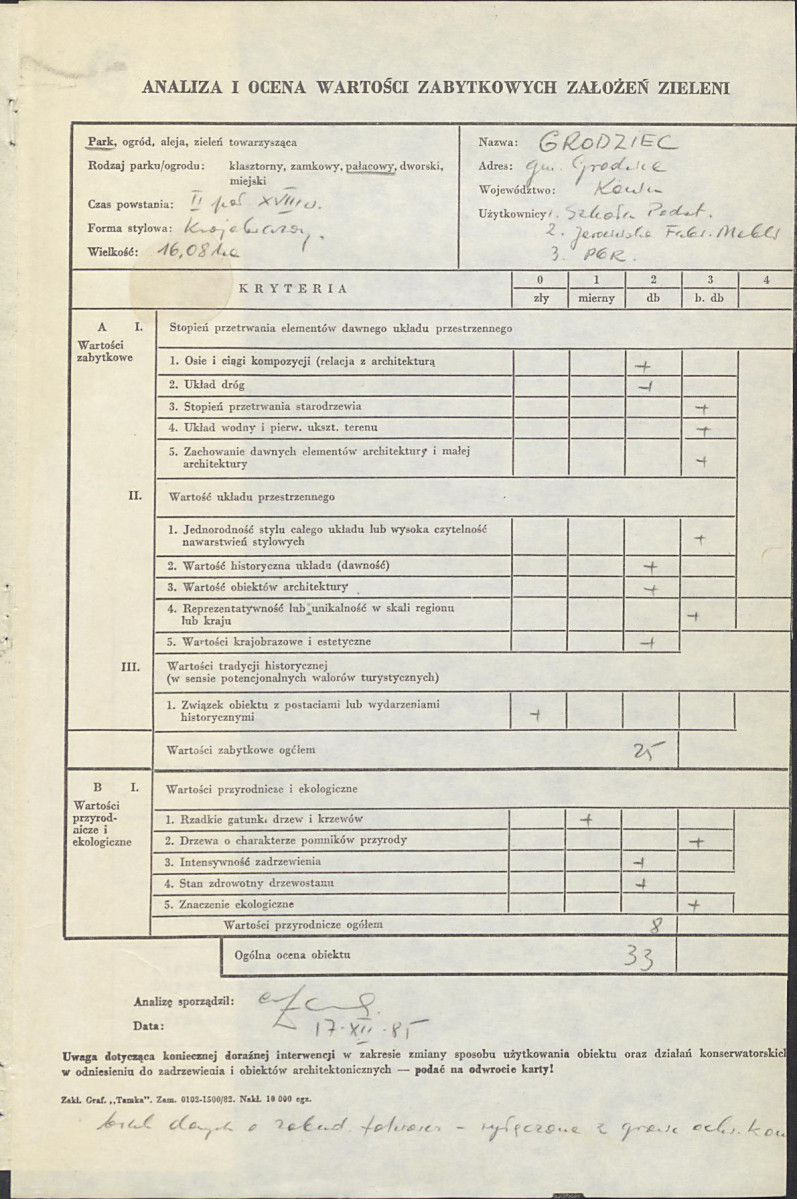 ANALIZA I OCENA WARTOŚCI ZABYTKOWYCH ZAŁOŻEŃ ZIELENI
Park, ogród, aleja, zieleń towarzysząca
Rodzaj parku/ogrodu: klasztorny, zamkowy, pałacowy, dworski,
miejski
Czas powstania: II poł XVIII w.
Forma stylowa: Krajobrazowy.
Wielkość: 16,08 ha
Nazwa: GRODZIEC
Adres: gm. Grodziec
Województwo: Konin
Użytkownicy: 1. Szkoła Podst.
2. Fabr. Mebli
3. PGR.
KRYTERIA
0 1 2 3 4
zły mierny db b. db
A I. Stopień przetrwania elementów dawnego układu przestrzennego
Wartości
zabytkowe
1. Osie i ciągi kompozycji (relacja z architekturą +
2. Układ dróg +
3. Stopień przetrwania starodrzewia +
4. Układ wodny i pierw. ukszt. terenu +
5. Zachowanie dawnych elementów architektury i małej
architektury +
II. Wartość układu przestrzennego
1. Jednorodność stylu całego układu lub wysoka czytelność
nawarstwień stylowych +
2. Wartość historyczna układu (dawność) +
3. Wartość obiektów architektury +
4. Reprezentatywność lub unikalność w skali regionu
lub kraju +
5. Wartości krajobrazowe i estetyczne +
III. Wartości tradycji historycznej
(w sensie potencjonalnych walorów turystycznych)
1. Związek obiektu z postaciami lub wydarzeniami
historycznymi +
Wartości zabytkowe ogółem 25
B I. Wartości przyrodnicze i ekologiczne
Wartości
przyrod-
nicze i
ekologiczne
1. Rzadkie gatunki drzew i krzewów +
2. Drzewa o charakterze pomników przyrody +
3. Intensywność zadrzewienia +
4. Stan zdrowotny drzewostanu +
5. Znaczenie ekologiczne +
Wartości przyrodnicze ogółem 8
Ogólna ocena obiektu 33
Analizę sporządził:
Data: 17-XII-85
Uwaga dotycząca koniecznej doraźnej interwencji w zakresie zmiany sposobu użytkowania obiektu oraz działań konserwatorskich
w odniesieniu do zadrzewienia i obiektów architektonicznych — podać na odwrocie karty!
Zakł. Graf. „Tamka". Zam. 0102-1500/82. Nakł. 10 000 egz.
brak danych o zabud. folwarcz - wyłączone z granic ochr. kon